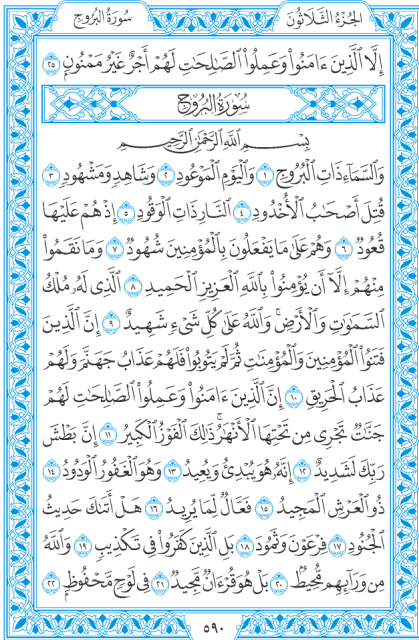 سُورَةُ البُرُوجِ الجُزْءُ الثَّلَاثُونَ
إِلَّا الَّذِينَ ءَامَنُوا وَعَمِلُوا الصَّالِحَاتِ لَهُمْ أَجْرٌ غَيْرُ مَمْنُونٍ ٢٥
سُورَةُ البُرُوجِ
بِسْمِ اللَّهِ الرَّحْمَٰنِ الرَّحِيمِ
وَالسَّمَاءِ ذَاتِ الْبُرُوجِ ١ وَالْيَوْمِ الْمَوْعُودِ ٢ وَشَاهِدٍ وَمَشْهُودٍ ٣
قُتِلَ أَصْحَابُ الْأُخْدُودِ ٤ النَّارِ ذَاتِ الْوَقُودِ ٥ إِذْ هُمْ عَلَيْهَا
قُعُودٌ ٦ وَهُمْ عَلَىٰ مَا يَفْعَلُونَ بِالْمُؤْمِنِينَ شُهُودٌ ٧ وَمَا نَقَمُوا
مِنْهُمْ إِلَّا أَن يُؤْمِنُوا بِاللَّهِ الْعَزِيزِ الْحَمِيدِ ٨ الَّذِي لَهُ مُلْكُ
السَّمَاوَاتِ وَالْأَرْضِ ۚ وَاللَّهُ عَلَىٰ كُلِّ شَيْءٍ شَهِيدٌ ٩ إِنَّ الَّذِينَ
فَتَنُوا الْمُؤْمِنِينَ وَالْمُؤْمِنَاتِ ثُمَّ لَمْ يَتُوبُوا فَلَهُمْ عَذَابُ جَهَنَّمَ وَلَهُمْ
عَذَابُ الْحَرِيقِ ١٠ إِنَّ الَّذِينَ ءَامَنُوا وَعَمِلُوا الصَّالِحَاتِ لَهُمْ
جَنَّاتٌ تَجْرِي مِن تَحْتِهَا الْأَنْهَارُ ۚ ذَٰلِكَ الْفَوْزُ الْكَبِيرُ ١١ إِنَّ بَطْشَ
رَبِّكَ لَشَدِيدٌ ١٢ إِنَّهُ هُوَ يُبْدِئُ وَيُعِيدُ ١٣ وَهُوَ الْغَفُورُ الْوَدُودُ ١٤
ذُو الْعَرْشِ الْمَجِيدُ ١٥ فَعَّالٌ لِّمَا يُرِيدُ ١٦ هَلْ أَتَىٰكَ حَدِيثُ
الْجُنُودِ ١٧ فِرْعَوْنَ وَثَمُودَ ١٨ بَلِ الَّذِينَ كَفَرُوا فِي تَكْذِيبٍ ١٩ وَاللَّهُ
مِن وَرَائِهِم مُّحِيطٌ ٢٠ بَلْ هُوَ قُرْءَانٌ مَّجِيدٌ ٢١ فِي لَوْحٍ مَّحْفُوظٍ ٢٢
٥٩٠